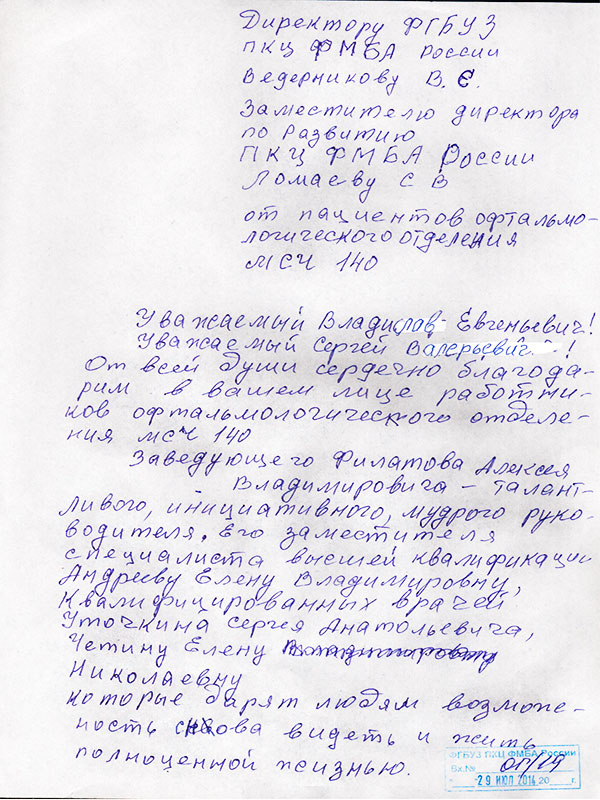 Директору ФГБУЗ
ПКЦ ФМБА России
Ведерникову В.Е.
Заместителю директора
по развитию
ПКЦ ФМБА России
Ломаеву С В
от пациентов офтальмо-
логического отделения
МСЧ 140
Уважаемый Владислав Евгеньевич!
Уважаемый Сергей Валерьевич!
От всей души сердечно благода-
рим в вашем лице работни-
ков офтальмологического отделе-
ния МСЧ 140
Заведующего Филатова Алексея
Владимировича – талант-
ливого, инициативного, мудрого руко-
водителя. Его заместителя
специалиста высшей квалификации
Андрееву Елену Владимировну,
квалифицированных врачей
Уточкина Сергея Анатольевича,
Четину Елену
Николаевну
которые дарят людям возмож-
ность снова видеть и жить
полноценной жизнью.
ФГБУЗ ПКЦ ФМБА России
Вх.№
29 ИЮЛ 2014 20 г.